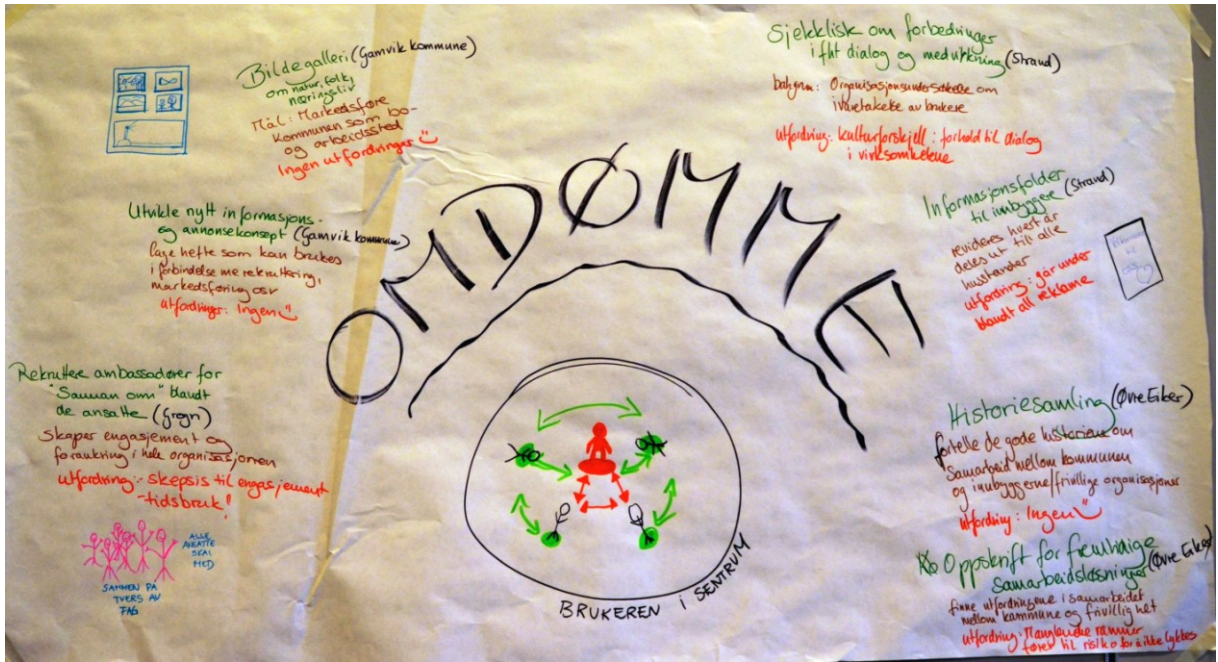 Bildegalleri (Gamvik kommune)
om natur, folk,
næringsliv
Mål: Markedsføre
kommunen som bo-
og arbeidssted
Ingen utfordringer
Utvikle nytt informasjons-
og annonsekonsept (Gamvik kommune)
lage hefte som kan brukes
i forbindelse me rekruttering,
markedsføring osv
utfordringer: Ingen
Rekruttere ambassadører for
"Sammen om" blandt
de ansatte (Grogn)
Skaper engasjement og
forankring i hele organisasjonen
utfordring: - skepsis til engasjement
- tidsbruk!
ALLE
ANSATTE
SKAL
MED
SAMMEN PÅ
TVERS AV
FAG
OMDØMME
BRUKEREN I SENTRUM
Sjekklisk om forbedringer
i fht dialog og medvirkning (Strand)
bakgrunn: Organisasjonsundersøkelse om
ivaretakelse av brukere
utfordring: kulturforskjell: forhold til dialog
i virksomhetene
Informasjonsfolder (Strand)
til innbyggere
revideres hvert år
deles ut til alle
husstander
utfordring: går under
blandt all reklame
Historiesamling (Øvre Eiker)
fortelle de gode historiene om
samarbeid mellom kommunen
og innbyggerne/frivillige organisasjoner
utfordring: Ingen
Oppskrift for fremtidige
samarbeidsløsninger (Øvre Eiker)
finne utfordringene i samarbeidet
mellom kommune og frivillighet
utfordring: Manglende rammer
fører til risiko for å ikke lykkes